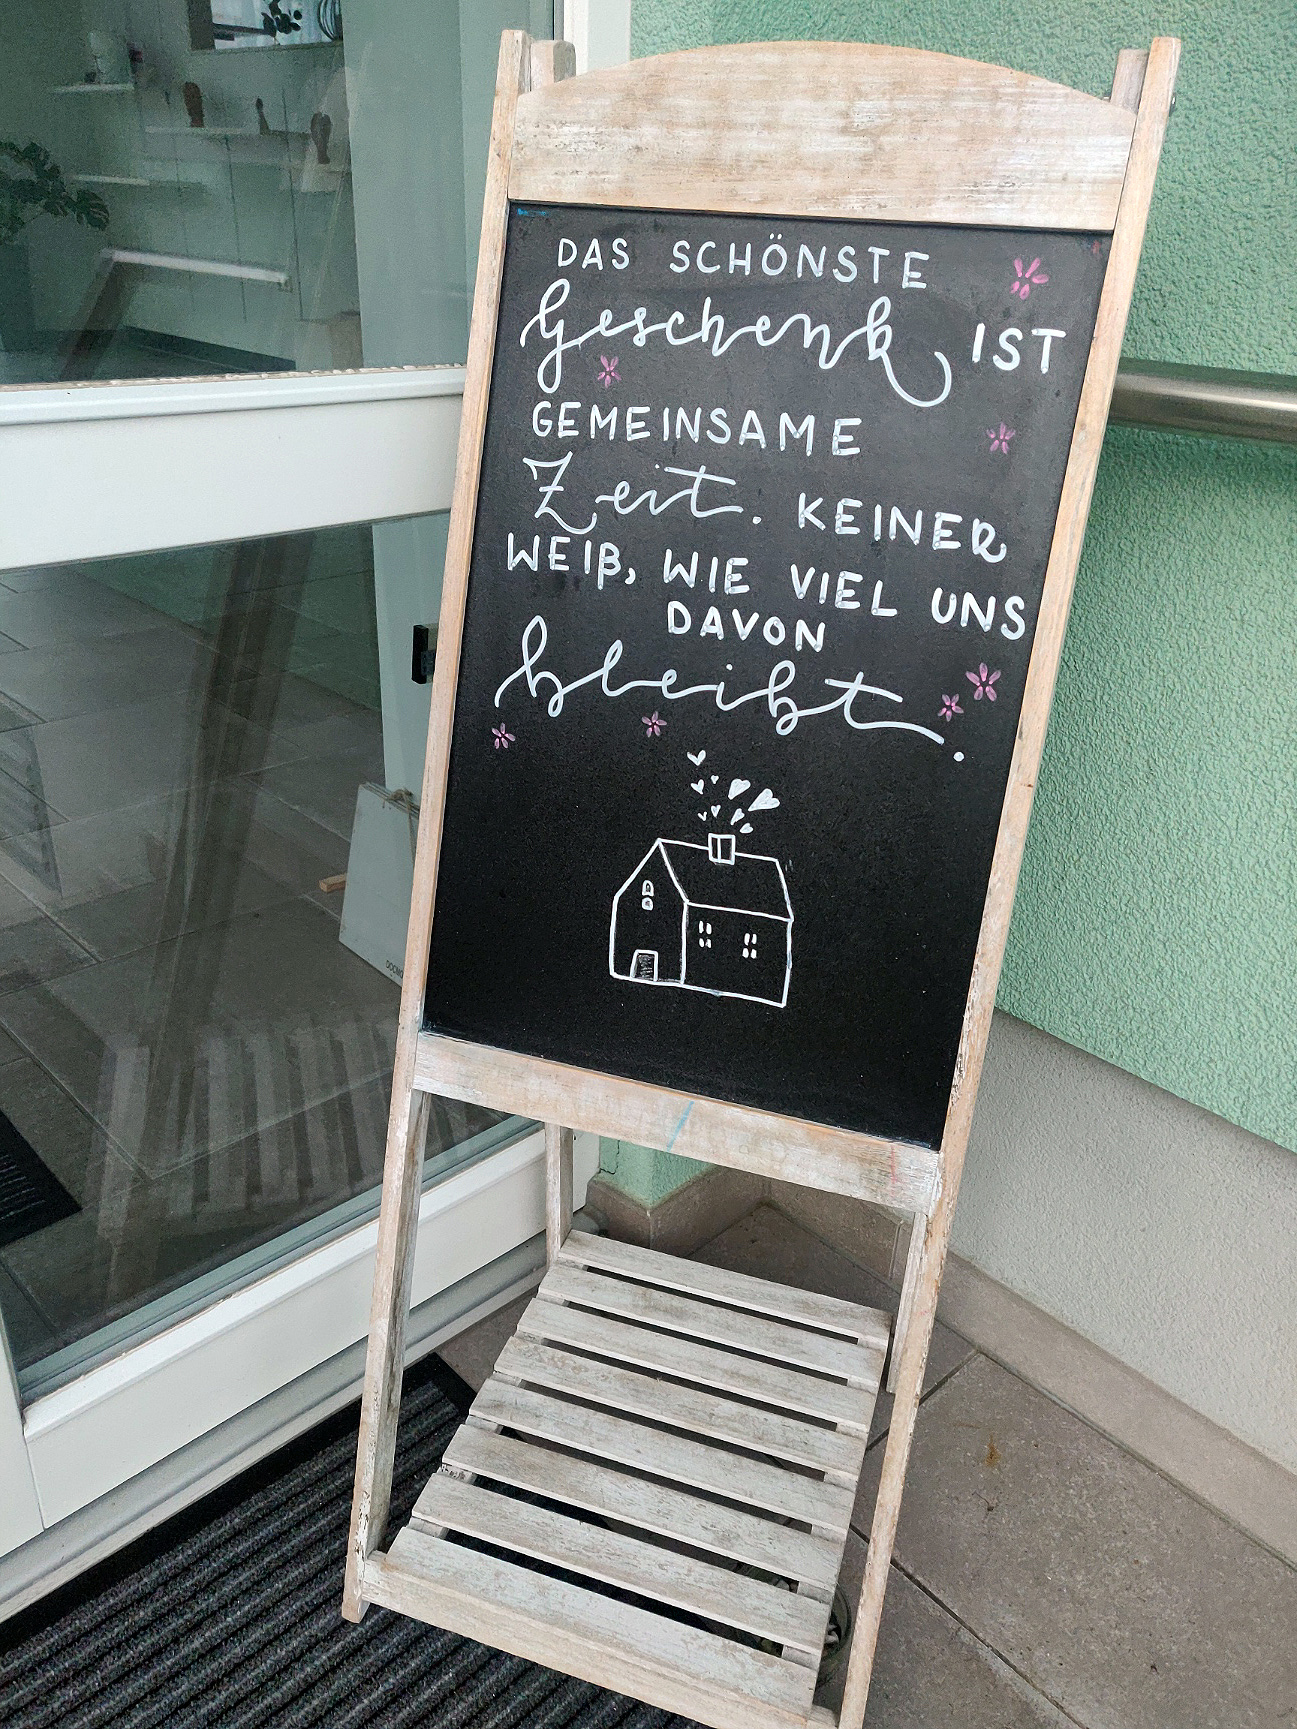 DAS SCHÖNSTE
Geschenk IST
GEMEINSAME
Zeit. KEINER
WEIß, WIE VIEL UNS
DAVON
bleibt.